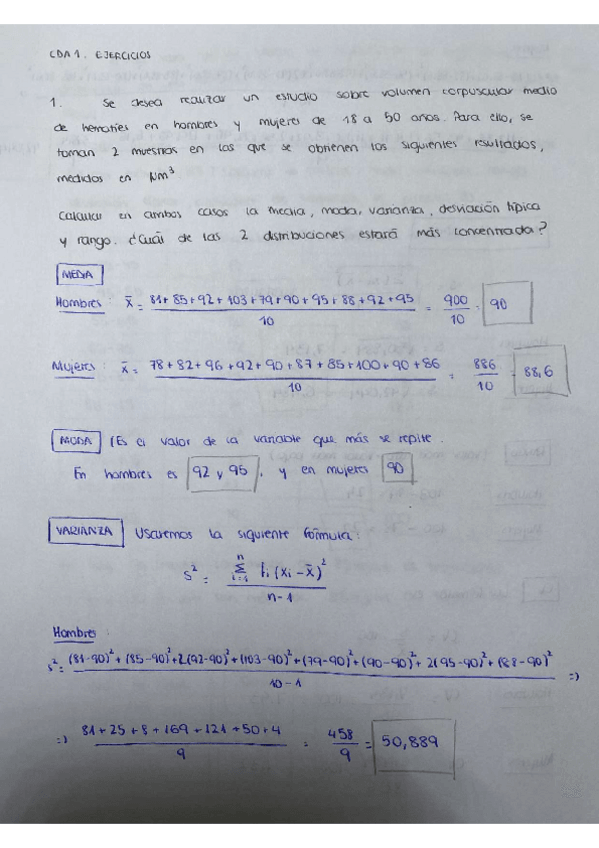 CDA 1. EJERCICIOS
1. Se desea realizar un estudio sobre volumen corpuscular medio
de hematíes en hombres y mujeres de 18 a 50 años. Para ello, se
toman 2 muestras en las que se obtienen los siguientes resultados,
medidos en Nm³
Calcular en ambos casos la media, moda, varianza, desviación típica
y rango. ¿Cuál de las 2 distribuciones estará más concentrada?
MEDIA
Hombres: x̄ = 81+85+92+103+79+90+95+88+92+95 / 10 = 900 / 10 = 90
Mujeres: x̄ = 78+82+96+92+90+87+85+100+90+86 / 10 = 886 / 10 = 88,6
MODA (Es el valor de la variable que más se repite.
En hombres es 92 y 95, y en mujeres 90
VARIANZA Usaremos la siguiente fórmula:
s² = Σ fi (xi - x̄)² / n-1
n
i=1
Hombres:
s² = (81-90)² + (85-90)² + 2(92-90)² + (103-90)² + (79-90)² + (90-90)² + 2(95-90)² + (88-90)² / 10-1 =>
=> 81+25+8+169+121+50+4 / 9 = 458 / 9 = 50,889